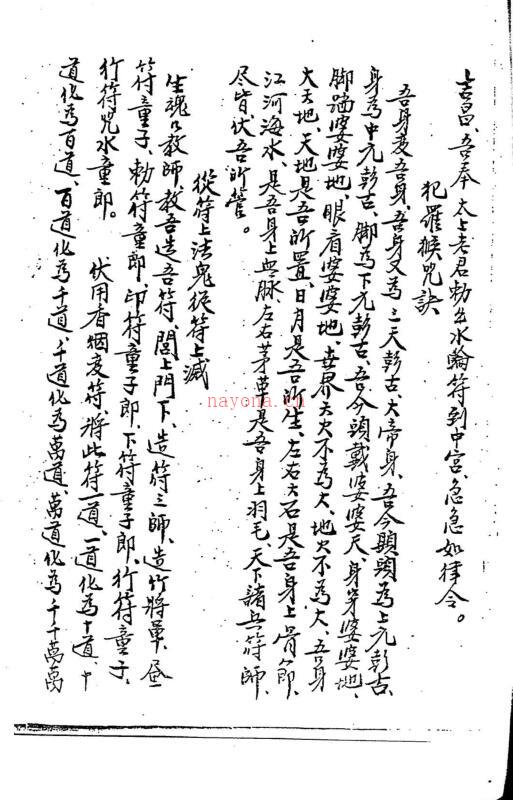 吉昌、吾奉 太上老君勅出水輪符到中宮、急急如律令。
犯羅猴咒訣
吾身変吾身、吾身又為三天彭古大帝身、吾今頭頭為上元彭古、
身為中元彭古、脚為下元彭古、吾今頭戴婆婆天、身穿婆婆地、
脚踏婆婆地、眼看婆婆地、世界大不為大、地大不為大、吾身
大天地、天地是吾所置、日月是吾所生、左右大石是吾身上骨節、
江河海水、是吾身上血脉、左右茅草是吾身上羽毛、天下諸兵符師、
尽皆伏吾所管。
從符上法鬼從符上滅
生魂乃教師、教吾造吾符、閭上門下、造符三師、造竹將軍、
符童子、勅符童郎、印符童子郎、下符童子郎、行符童子、
行符咒水童郎。
伏用香烟変符、將此符一道、一道化為十道、十
道化為百道、百道化為千道、千道化為萬道、萬道化為千千萬萬
nayona.cn